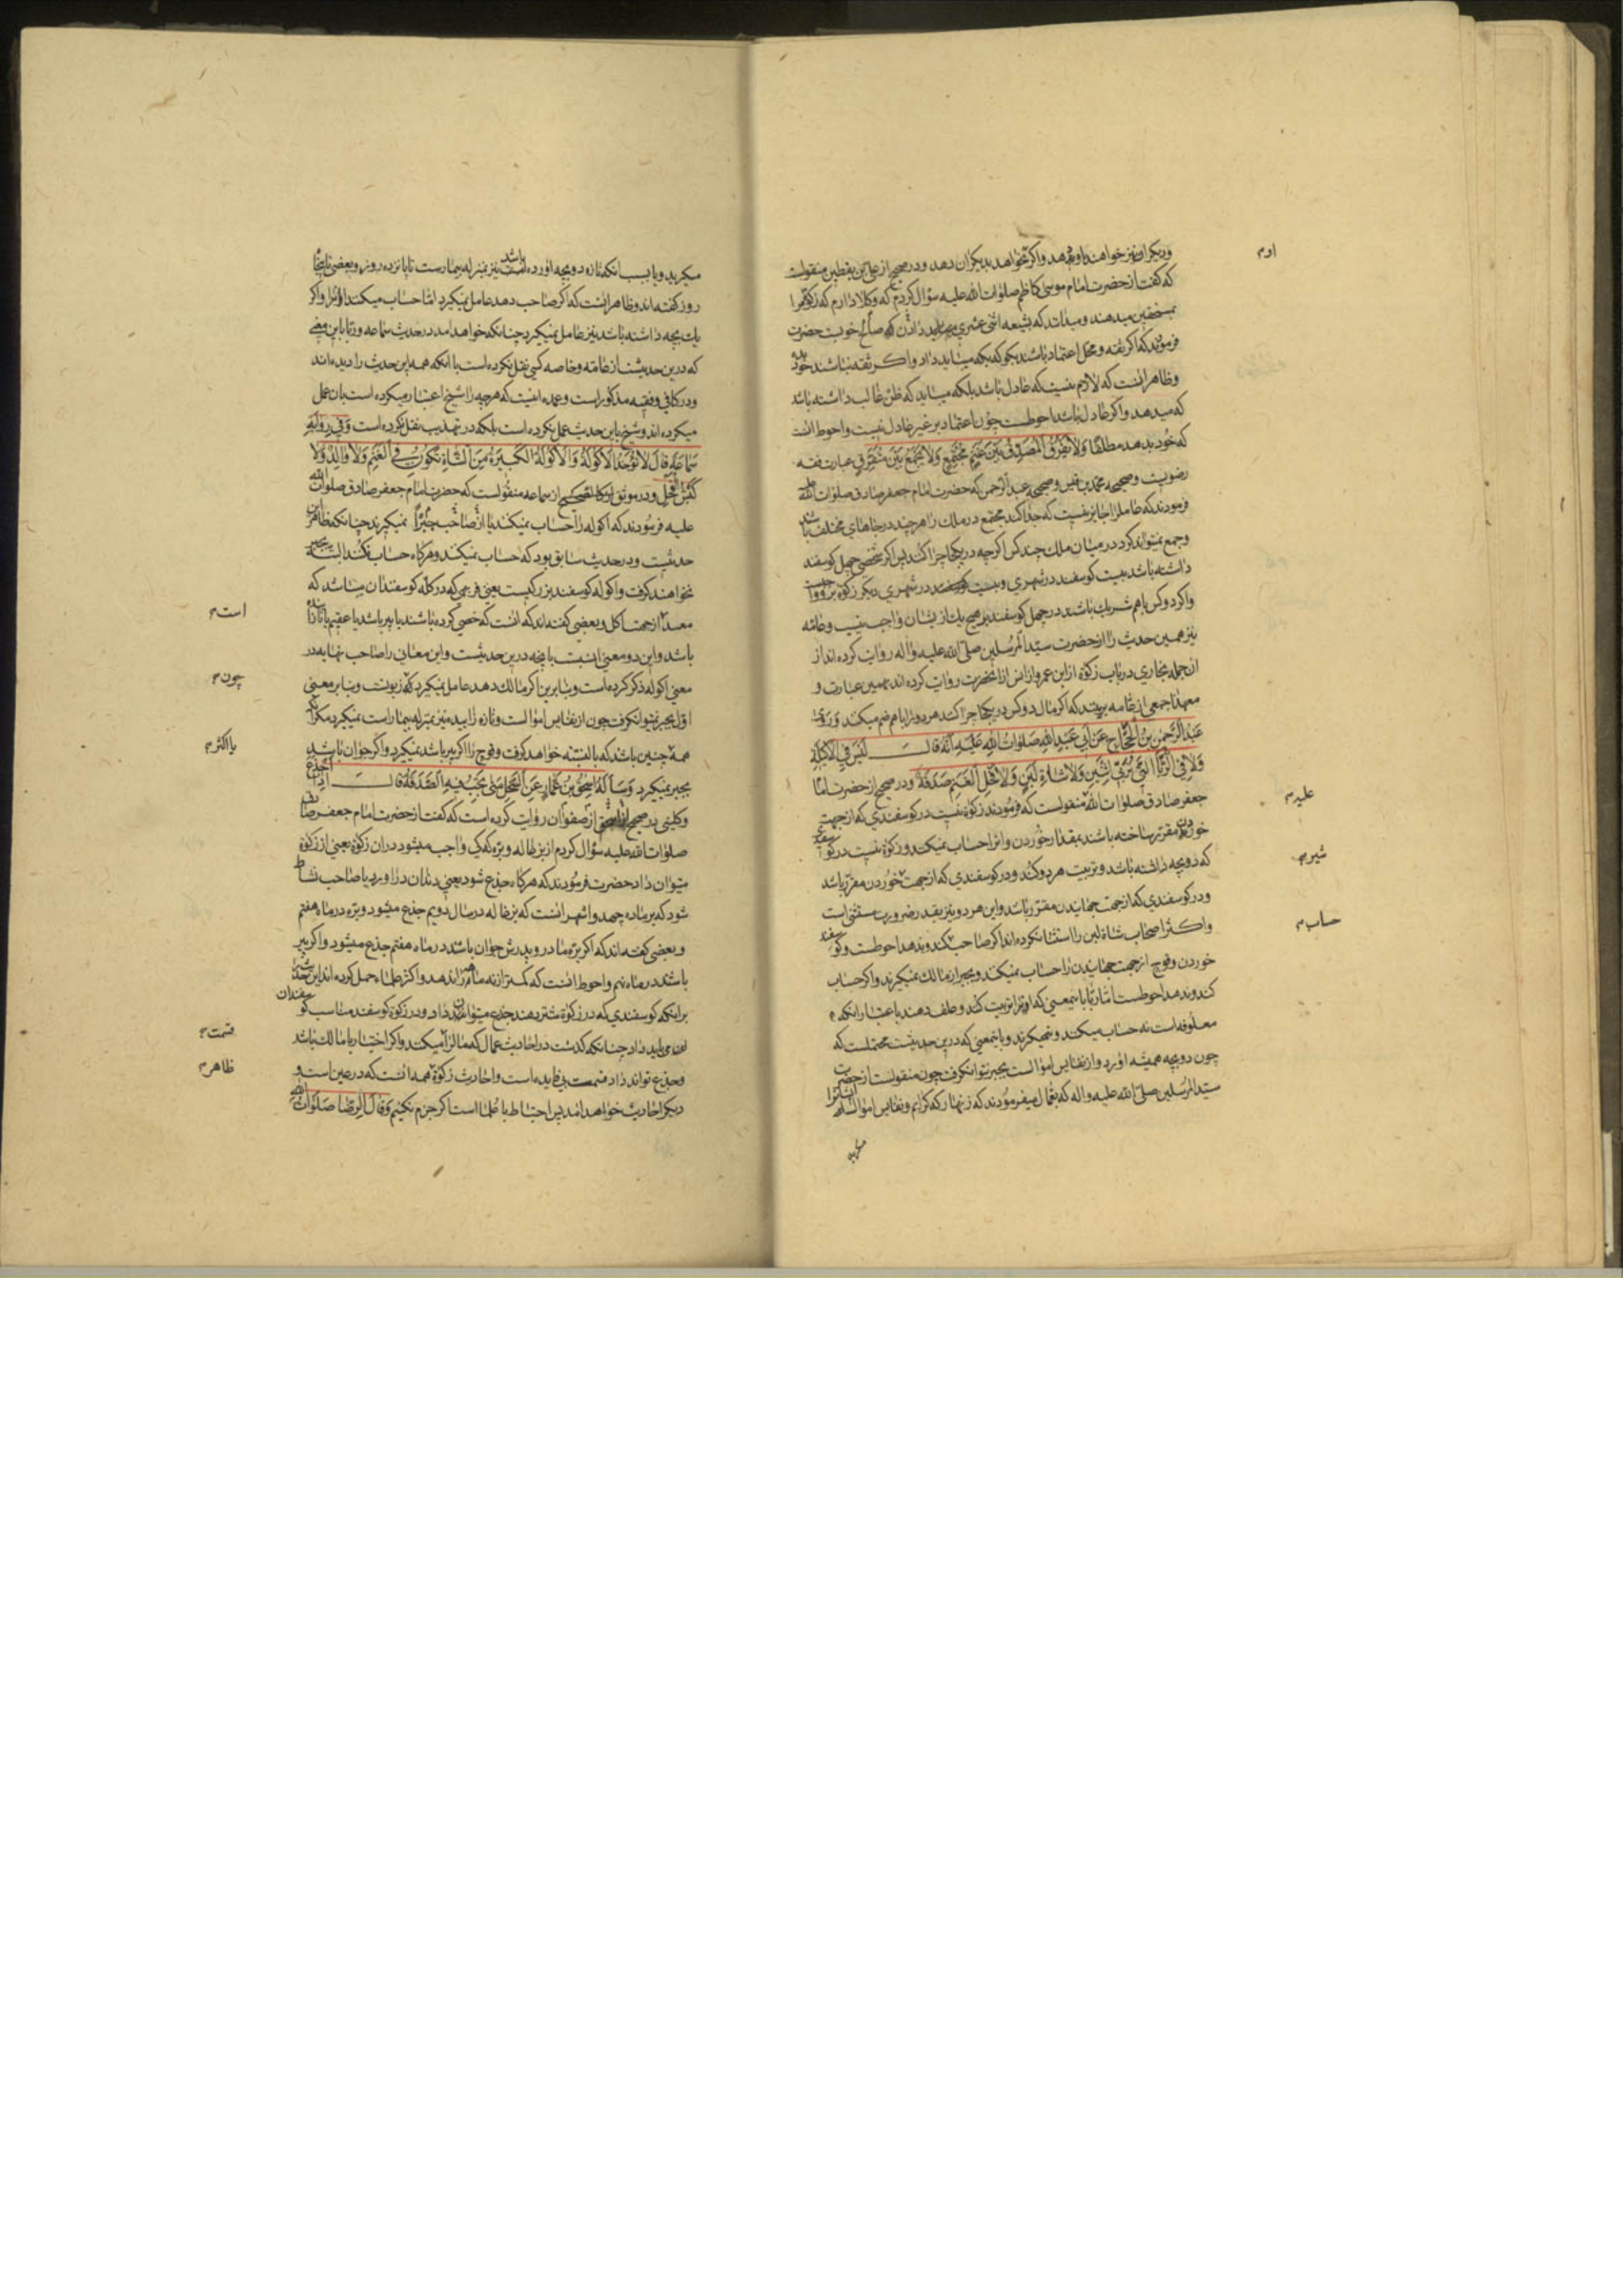 که گفت از حضرت امام موسی کاظم صلوات الله علیه سؤال کردم که وکلا دارم که زکوة مرا
بمستحقین میدهند و میدانند که بشیعه اثنی عشری میباید دادن که صالح خوبست حضرت
فرمودند که اگر ثقه و محل اعتماد باشند بگو که بکه میباید داد و اکر ثقه نباشند خود بده
و ظاهر انست که لازم نیست که عادل باشد بلکه میباید که ظن غالب داشته باشد
که میدهد و اکر عادل باشد احوطست چون اعتماد بر غیر عادل نیست و احوط انست
که خود بدهد مطلقا وَلاٰ یُفَرِّقُ الْمُصَدِّقُ بَیْنَ غَنَمٍ مُجْتَمِعٍ وَلاٰ یَجْمَعُ بَیْنَ مُتَفَرِّقٍ عبارت فقه
رضویست و صحیحه محمد بن قیس و صحیحه عبدالرحمن که حضرت امام جعفر صادق صلوات الله علیه
فرمودند که عامل را جایز نیست که جدا کند مجتمع در ملك را هر چند در جاهای مختلف باشد
و جمع نمیتواند کرد در میان ملك چند کس اکر چه در یکجا چرا کنند پس اکر شخصی چهل کوسفند
داشته باشد بیست کوسفند در شهری و بیست کوسفند در شهری دیکر زکوة برو واجبست
و اکر دو کس با هم شریك باشند در چهل کوسفند بر هیچ یك از ایشان واجب نیست و عامه
نیز همین حدیث را از حضرت سید المرسلین صلی الله علیه و اله روایت کرده اند از
ان جمله بخاری در باب زکوة از ابن عمر و از انس از انحضرت روایت کرده اند بهمین عبارت و
معهذا جمعی از عامه بریند که اکر مال دو کس در یکجا چرا کند هر دو را با هم ضم میکند وَ رَوٰی
عَبْدُ الرَّحْمٰنِ بْنُ الْحَجّٰاجِ عَنْ أَبِی عَبْدِ اللهِ صَلَوٰاتُ اللهِ عَلَیْهِ أَنَّهُ قٰالَ لَیْسَ فِی الْأَکِیلَةِ
وَلاٰ فِی الرُّبّٰی الَّتِی تُرَبِّی اثْنَیْنِ وَلاٰ شٰاةِ لَبَنٍ وَلاٰ فَحْلِ الْغَنَمِ صَدَقَةٌ و در صحیح از حضرت امام
جعفر صادق صلوات الله منقولست که فرمودند زکوة نیست در کوسفندی که از جهت
خوردن مقرر ساخته باشند بمقدار خوردن و انرا حساب نمیکند و زکوة نیست در کوسفندی
که دو بچه داشته باشد و تربیت هر دو کند و در کوسفندی که از جهت خوردن مقرر باشد
و در کوسفندی که از جهت جهانیدن مقرر باشد و این هر دو نیز بقدر ضرورت مستثنی است
و اکثر اصحاب شاة لبن را استثنا نکرده اند اکر صاحب کند و بدهد احوطست و کوسفند
خوردن و قوچ از جهت جهانیدن را حساب نمیکند و بجبر از مالك نمیکیرند و اکر حساب
کند و بدهد احوطست اما ربا باینمعنی که او را تربیت کند و علف دهند باعتبار انکه
معلوفه است نه حساب میکند و نمیکیرند و باینمعنی که درین حدیث محتملست که
چون دو بچه همیشه اورد و از نفایس اموالست بجبر نتوان کرفت چون منقولست از حضرت
سید المرسلین صلی الله علیه و اله که بعمال میفرمودند که زنهار که کرایم و نفایس اموال ایشانرا
میکرید
ادم
علیه م
شیر م
حساب م
میکرید و یا بسبب انکه تازه دو بچه اورده باشد نیز بمنزله بیمارست تا پانزده روز و بعضی تا پنجاه
روز کفته اند و ظاهر انست که اکر صاحب دهد عامل نمیکیرد اما حساب میکند او را و اکر
یك بچه داشته باشد نیز عامل نمیکیرد چنانکه خواهد امد در حدیث سماعه و ربا باین معنی
که درین حدیثست از عامه و خاصه کسی نقل نکرده است با انکه همه این حدیث را دیده اند
و در کافی و فقیه مذکور است و عمده اینست که هر چه را شیخ اعتبار میکرده است بان عمل
میکرده اند و شیخ باین حدیث عمل نکرده است بلکه در تهذیب نقل نکرده است وَ فِی رِوٰایَةِ
سَمٰاعَةَ قٰالَ لاٰ تُؤْخَذُ الْأَکُولَةُ وَ الْأَکُولَةُ الْکَبِیرَةُ مِنَ الشّٰاةِ تَکُونُ فِی الْغَنَمِ وَلاٰ وٰالِدٌ وَلاٰ
کَبْشُ الْفَحْلِ و در موثق کالصحیح از سماعه منقولست که حضرت امام جعفر صادق صلوات الله
علیه فرمودند که اکوله را حساب نمیکند یا از صاحب جبرا نمیکیرند چنانکه ظاهر این
حدیثست و در حدیث سابق بود که حساب نمیکند و هرکاه حساب نکند البته بجبر
نخواهند کرفت و اکوله کوسفند بزرکیست یعنی فربهی که در کله کوسفندان میباشد که
معد از جهت اکل و بعضی کفته اند که انست که خصی کرده باشند یا پیر باشد یا عقیم یا نازا
باشد و این دو معنی انسبست بانچه درین حدیثست و این معانی را صاحب نهایه در
معنی اکوله ذکر کرده است و بنا برین اکر مالك دهد عامل نمیکیرد که زبونست و بنا بر معنی
اول بجبر نمیتوان کرفت چون از نفایس اموالست و تازه زاییده نیز بمنزله بیمار است نمیکیرد مکر انکه
همه چنین باشد که بالبته خواهد کرفت و قوچ را اکر پیر باشد نمیکیرد و اکر جوان باشد
بجبر نمیکیرد وَ سَأَلَهُ إِسْحٰقُ بْنُ عَمّٰارٍ عَنِ السَّخْلِ مَتٰی تَجِبُ فِیهِ الصَّدَقَةُ قٰالَ إِذٰا أَجْذَعَ
و کلینی در صحیح از صفوان روایت کرده است که کفت از حضرت امام جعفر صادق
صلوات الله علیه سؤال کردم از بزغاله و بره که کی واجب میشود در ان زکوة یعنی از زکوة
میتوان داد حضرت فرمودند که هرکاه جذع شود یعنی دندان در اورد یا صاحب نشاط
شود که بر ماده جهد و اشهر انست که بزغاله در سال دویم جذع میشود و بره در ماه هفتم
و بعضی کفته اند که اکر بره مادر و پدرش جوان باشد در ماه هفتم جذع میشود و اکر پیر
باشد در ماه نهم و احوط انست که کمتر از نه ماهه را ندهد و اکثر علما حمل کرده اند این حدیث را
بر اینکه کوسفندی که در زکوة شتر دهند جذع میتوان داد و در زکوة کوسفند مناسب کوسفندان
می باید داد چنانکه کذشت در احادیث عمال که مال را میکند و اکر اختیار با مالك باشد
و جذع تواند داد قسمت بی فایده است و احادیث زکوة همه انست که در عین است و
دیکر احادیث خواهد امد پس احتیاط با علما است اکر جزم نکنیم وَ قٰالَ الرِّضٰا صَلَوٰاتُ الله
است م
چون م
یا اکثر م
قسمت م
ظاهر م